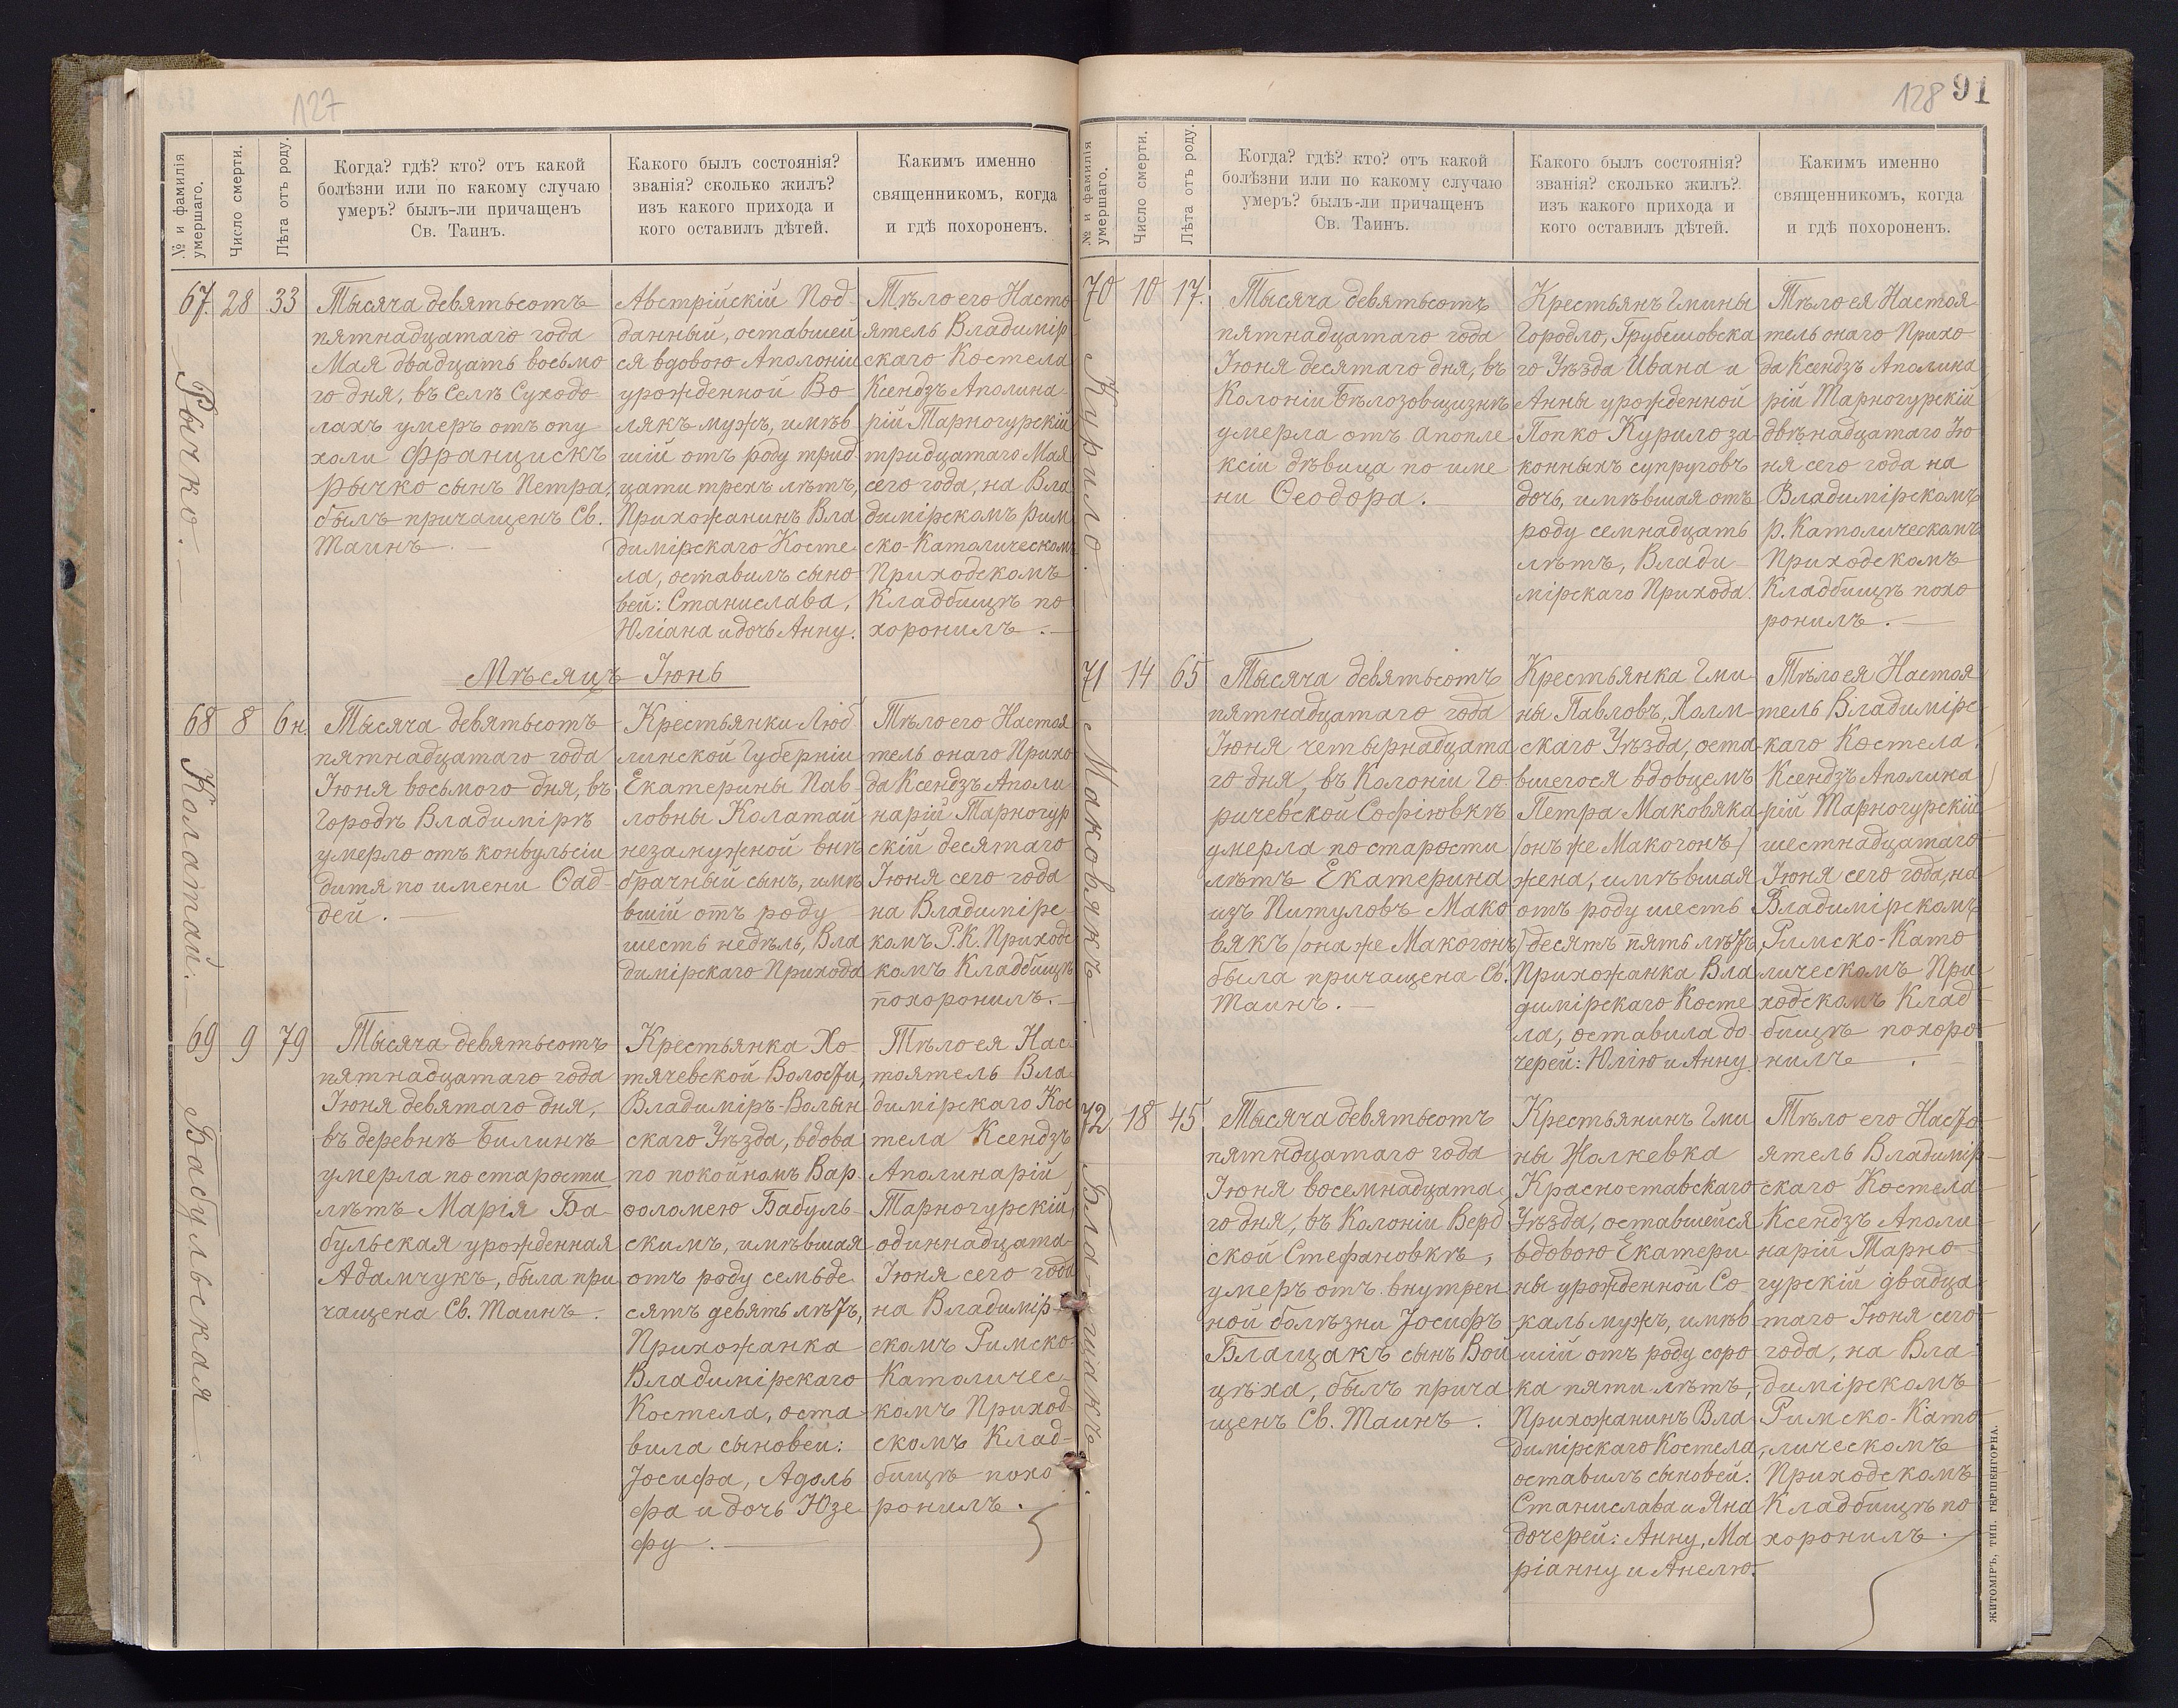 127
№ и фамилія умершаго.
Число смерти.
Лѣта отъ роду.
Когда? гдѣ? кто? отъ какой
болѣзни или по какому случаю
умеръ? былъ-ли причащенъ
Св. Таинъ.
Какого былъ состоянія?
званія? сколько жилъ?
изъ какого прихода и
кого оставилъ дѣтей.
Какимъ именно
священникомъ, когда
и гдѣ похороненъ.
67. 28 33
Рычко.
Тысяча девятьсотъ
пятнадцатаго года
Мая двадцать восьмо
го дня, въ Селѣ Суходо
лахъ умеръ отъ опу
холи Францискъ
Рычко сынъ Петра,
былъ причащенъ Св.
Таинъ. —
Австрійскій Под
данный, оставшей
ся вдовою Аполоніи
урожденной Во-
лякъ мужъ, имѣв
шій отъ роду трид
цати трехъ лѣтъ,
Прихожанинъ Вла
димірскаго Косте
ла, оставилъ сыно
вей: Станислава,
Юліана и дочь Анну.
Тѣло его Насто
ятель Владимір
скаго Костела
Ксендзъ Аполина
рій Тарногурскій
тридцатаго Мая
сего года, на Вла
димірскомъ Рим
ско-Католическомъ
Приходскомъ
Кладбищѣ по
хоронилъ. —
Мѣсяцъ Іюнь
68 8 6 н.
Колатай.
Тысяча девятьсотъ
пятнадцатаго года
Іюня восьмого дня, въ
Городѣ Владимірѣ
умерло отъ конвульсіи
дитя по имени Ѳад-
дей. —
Крестьянки Люб
линской Губерніи
Екатерины Пав
ловны Колатай
незамужной внѣ
брачный сынъ, имѣ
вшій отъ роду
шесть недѣль, Вла
димірскаго Прихода
Тѣло его Настоя
тель онаго Прихо
да Ксендзъ Аполи
нарій Тарногур
скій десятаго
Іюня сего года
на Владимірс
комъ Р. К. Приходс
комъ Кладбищѣ
похоронилъ. —
69 9 79
Бабульская.
Тысяча девятьсотъ
пятнадцатаго года
Іюня девятаго дня,
въ деревнѣ Билинѣ
умерла по старости
лѣтъ Марія Ба-
бульская урожденная
Адамчукъ, была при
чащена Св. Таинъ.
Крестьянка Хо
тячевской Волости,
Владиміръ-Волын
скаго Уѣзда, вдова
по покойномъ Вар
ѳоломею Бабуль-
скимъ, имѣвшая
отъ роду семьде
сятъ девять лѣтъ,
Прихожанка
Владимірскаго
Костела, оста
вила сыновей:
Іосифа, Адоль
фа и дочь Юзе
фу. —
Тѣло ея Нас
тоятель Вла
димірскаго Кос
тела Ксендзъ
Аполинарій
Тарногурскій
одиннадцата
Іюня сего года
на Владимір
скомъ Римско-
Католичес
комъ Приход
скомъ Клад-
бищѣ похо
ронилъ.
128 91
№ и фамилія умершаго.
Число смерти.
Лѣта отъ роду.
Когда? гдѣ? кто? отъ какой
болѣзни или по какому случаю
умеръ? былъ-ли причащенъ
Св. Таинъ.
Какого былъ состоянія?
званія? сколько жилъ?
изъ какого прихода и
кого оставилъ дѣтей.
Какимъ именно
священникомъ, когда
и гдѣ похороненъ.
70 10 17.
Курило.
Тысяча девятьсотъ
пятнадцатаго года
Іюня десятаго дня, въ
Колоніи Бѣлозовщизнѣ
умерла отъ апопле
ксіи дѣвица по име
ни Ѳеодора. —
Крестьянъ Гмины
Городло, Грубешовска
го Уѣзда Ивана и
Анны урожденной
Попко Курило за
конныхъ супруговъ
дочь, имѣвшая отъ
роду семнадцать
лѣтъ, Влади-
мірскаго Прихода.
Тѣло ея Настоя
тель онаго Прихо
да Ксендзъ Аполина
рій Тарногурскій
двѣнадцатаго Ію
ня сего года на
Владимірскомъ
Р. Католическомъ
Приходскомъ
Кладбищѣ похо
ронилъ. —
71 14 65
Маковякъ.
Тысяча девятьсотъ
пятнадцатаго года
Іюня четырнадцата
го дня, въ Колоніи Го
ричевской Софіювкѣ
умерла по старости
лѣтъ Екатерина
изъ Питуловъ Мако
вякъ (она же Макогонъ)
была причащена Св.
Таинъ. —
Крестьянка Гми
ны Павловъ, Холм-
скаго Уѣзда, оста
вшегося вдовцемъ
Петра Маковяка
(онъ же Макогонъ)
жена, имѣвшая
отъ роду шесть
десятъ пять лѣтъ,
Прихожанка Вла
димірскаго Косте
ла, оставила до-
черей: Юлію и Анну
Тѣло ея Настоя
тель Владимірс
каго Костела,
Ксендзъ Аполина
рій Тарногурскій
шестнадцатаго
Іюня сего года, на
Владимірскомъ
Римско-Като
лическомъ При
ходскомъ Клад
бищѣ похоро
нилъ.
72 18 45
Бла-щакъ.
Тысяча девятьсотъ
пятндцатаго года
Іюня восемнадцата
го дня, въ Колоніи Верб
ской Стефановкѣ,
умеръ отъ внутрен
ной болѣзни Іосифъ
Блащакъ сынъ Вой
цѣха, былъ прича
щенъ Св. Таинъ.
Крестьянинъ Гми
ны Жолкевка
Красноставскаго
Уѣзда, оставшейся
вдовою Екатери
ны урожденной Со-
каль мужъ, имѣв
шій отъ роду соро
ка пяти лѣтъ,
Прихожанинъ Вла
димірскаго Костела,
оставилъ сыновей:
Станислава и Яна
дочерей: Анну, Ма
ріанну и Анелю.
Тѣло его Насто
ятель Владимір
скаго Костела
Ксендзъ Аполи
нарій Тарно-
гурскій двадца
таго Іюня сего
года, на Вла-
димірскомъ
Римско-Като
лическомъ
Приходскомъ
Кладбищѣ по
хоронилъ.
ЖИТОМІРЪ, ТИП. ГЕРШЕНГОРНА.